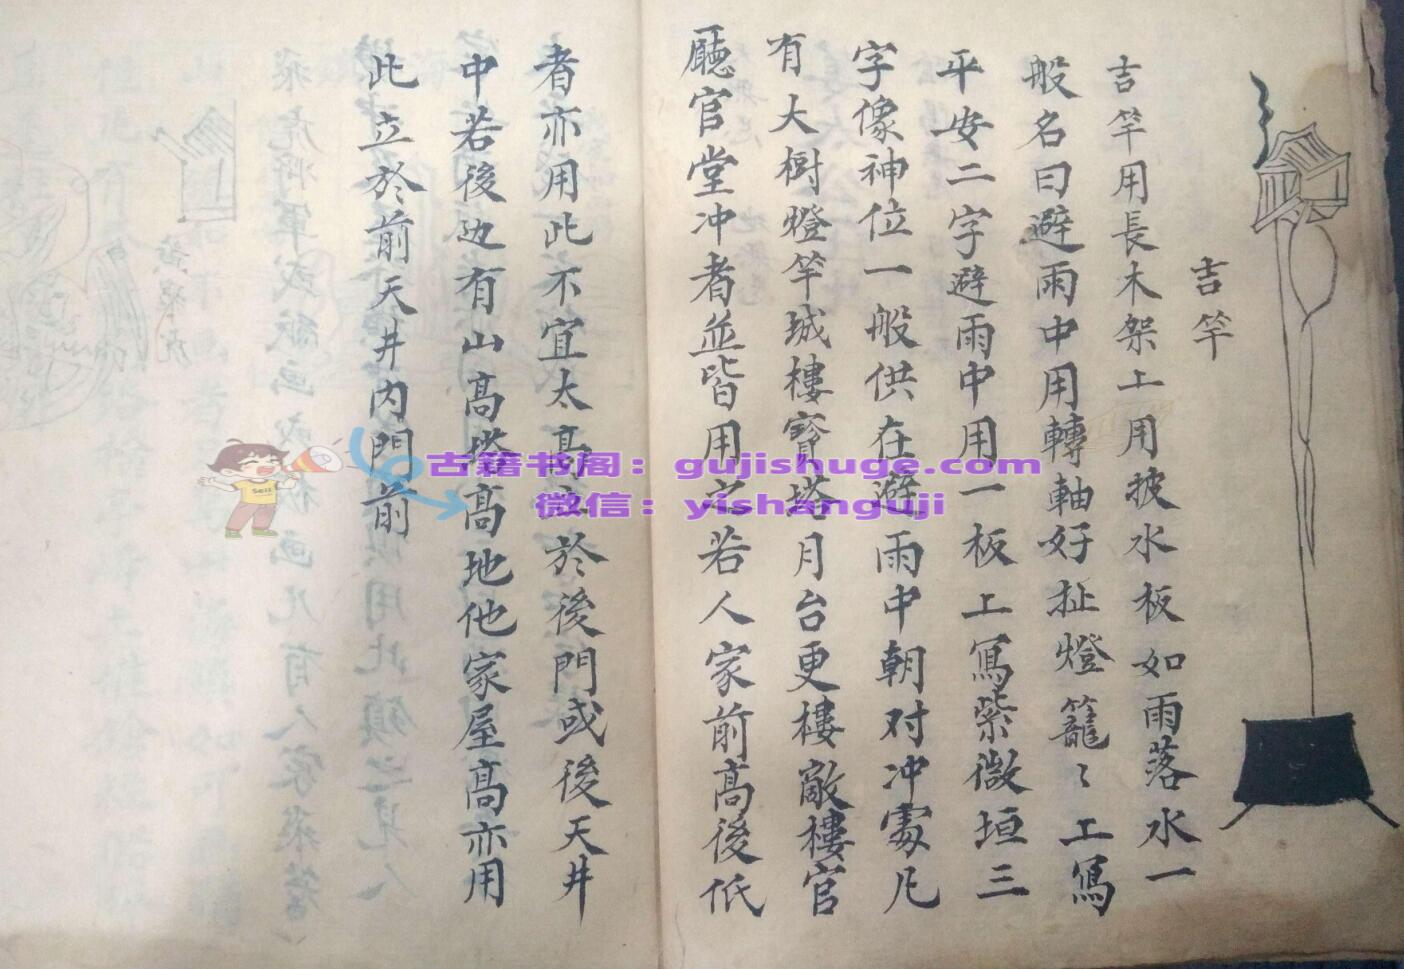 吉竿
吉竿用長木架上用披水板如雨落水一
般名曰避雨中用轉軸好扯燈籠〻上寫
平安二字避雨中用一板上寫紫微垣三
字像神位一般供在避雨中朝对冲處凡
有大樹燈竿城樓寳塔月台更樓敵樓官
廳官堂冲者並皆用之若人家前高後低
者亦用此不宜太高立於後門或後天井
中若後边有山高塔高地他家屋高亦用
此立於前天井内門前
古籍书阁：gujishuge.com
微信：yishanguji